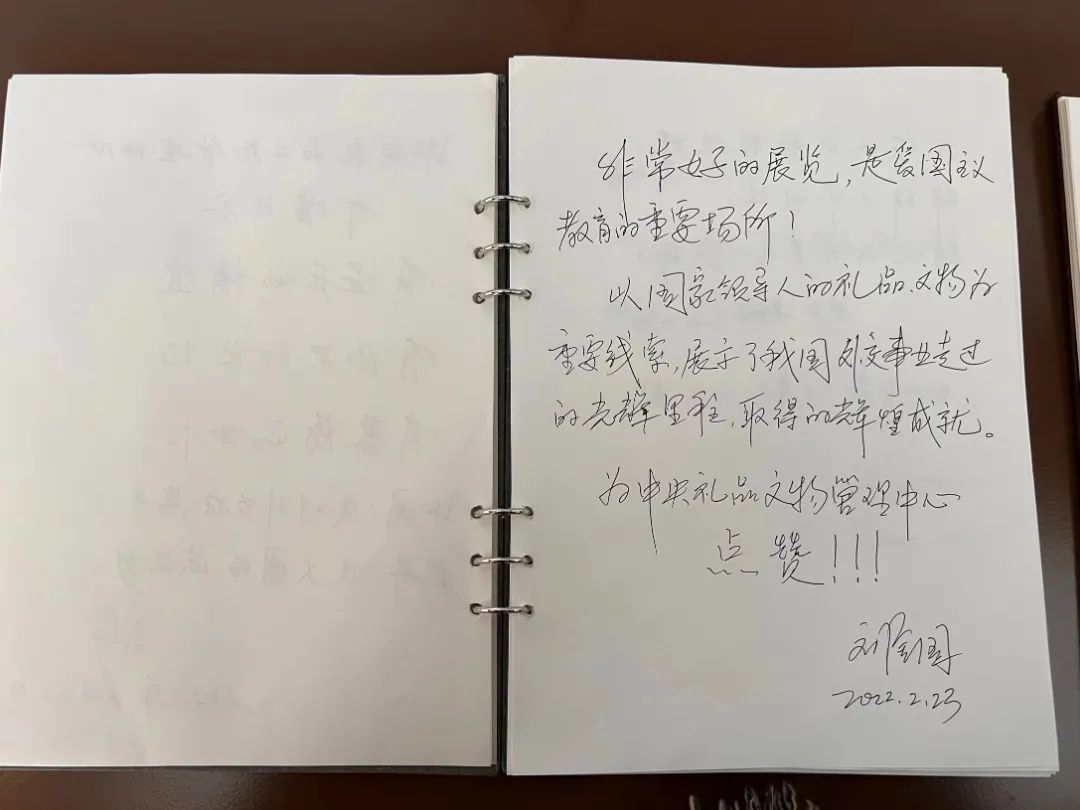 非常好的展览，是爱国主义
教育的重要场所！
以国家领导人的礼品、文物为
重要线索，展示了我国外交事业走过
的光辉里程，取得的辉煌成就。
为中央礼品文物管理中心
点赞！！！
刘金国
2022.2.23